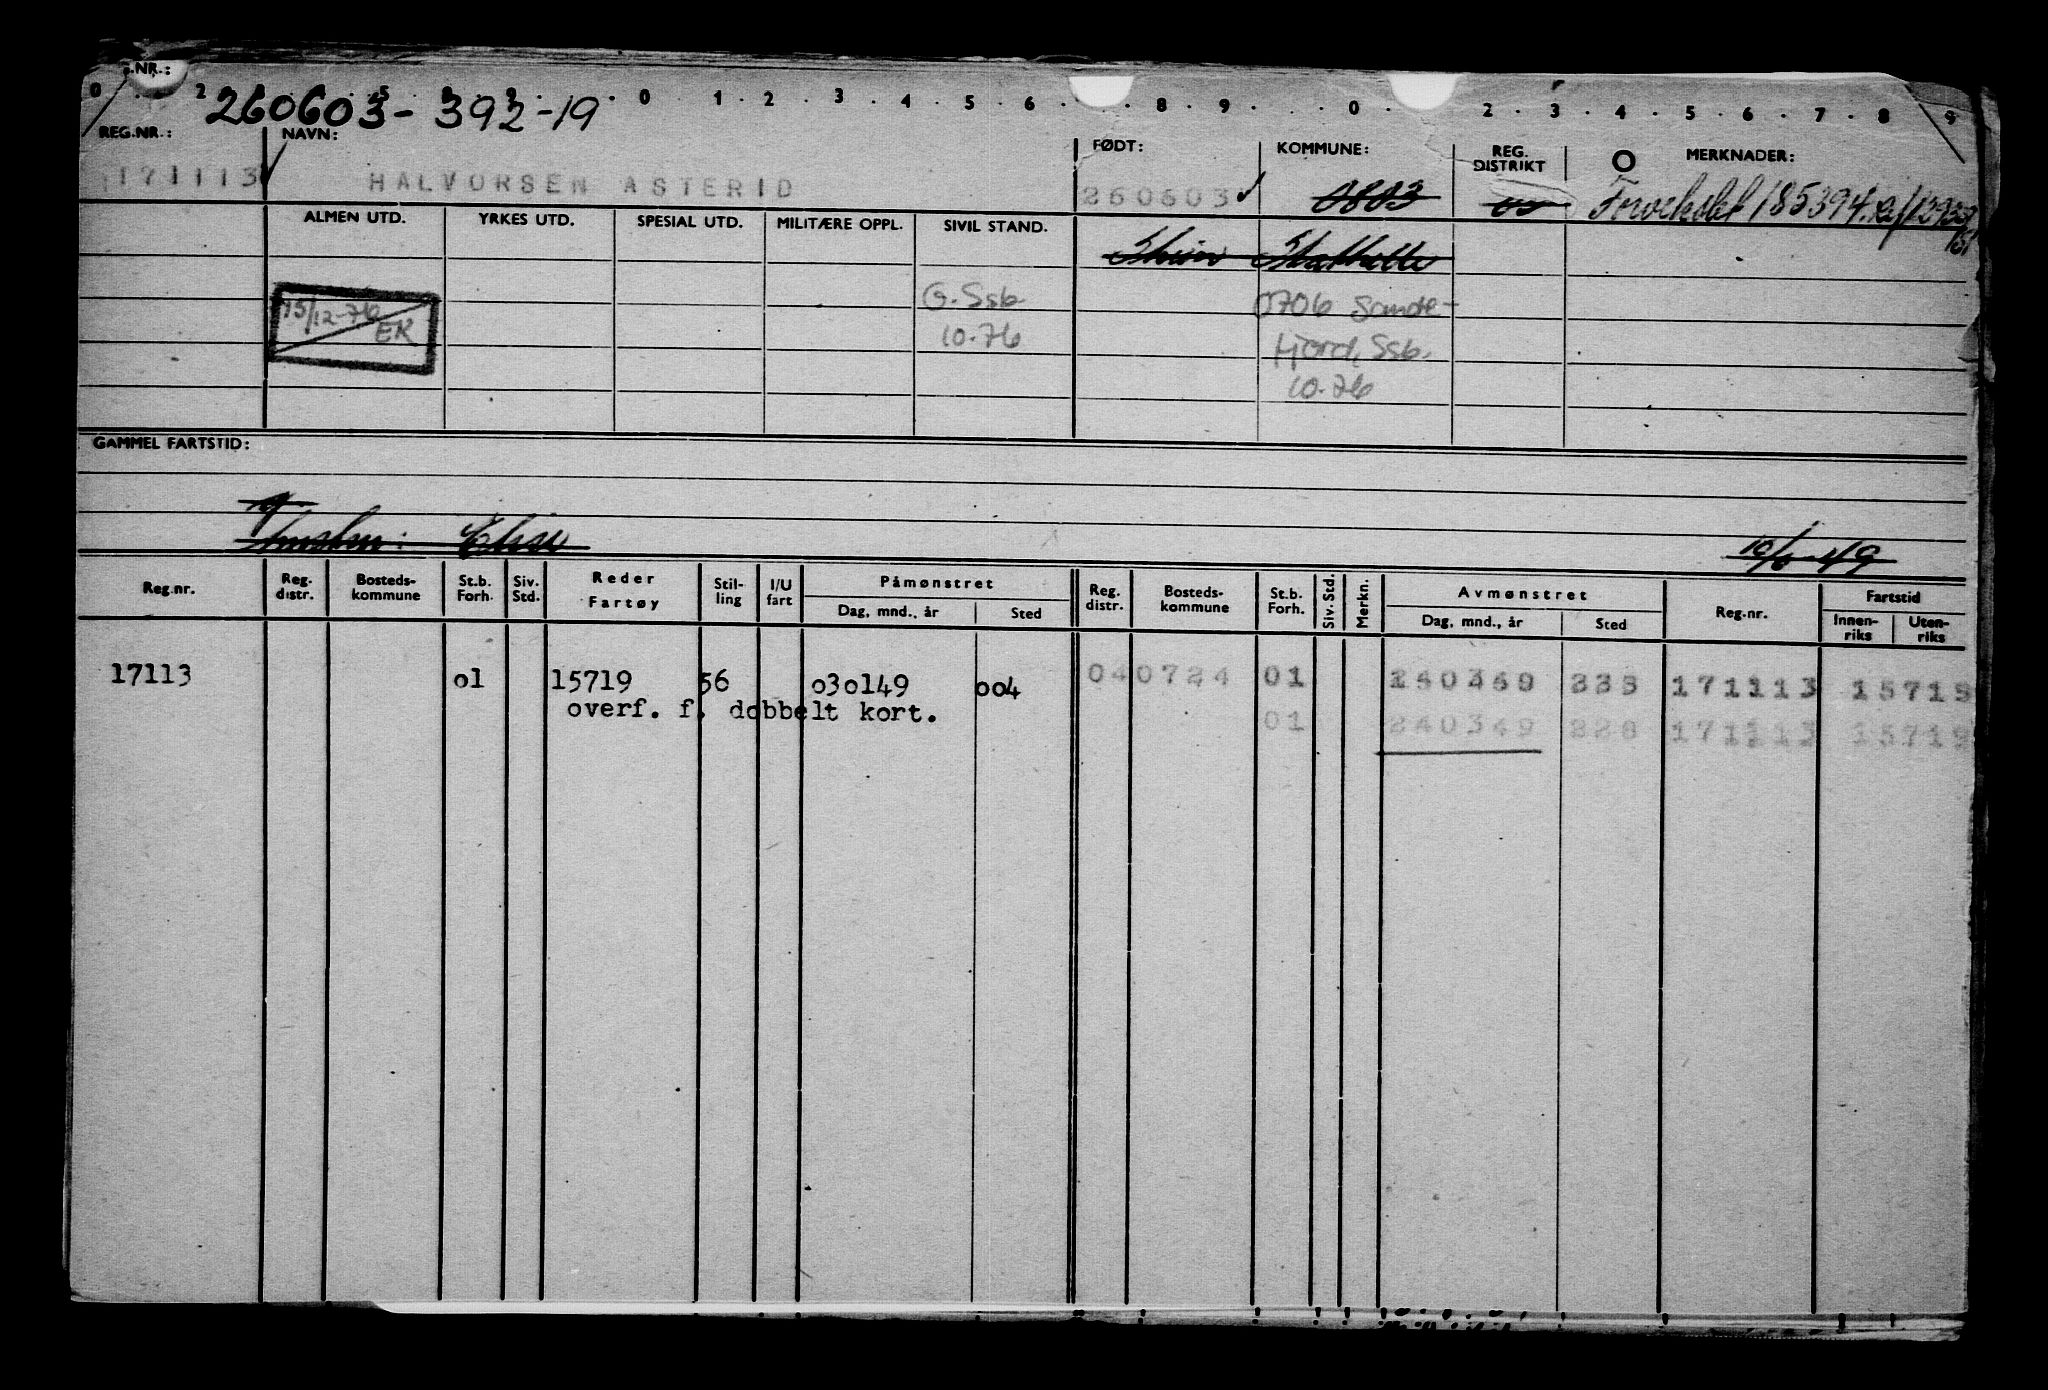 .NR.:
0 2 5 0 1 2 3 4 5 6 8 9 0 2 3 4 5 6 7 8 9
260603-392-19
REG.NR.: NAVN: FØDT: KOMMUNE: REG. DISTRIKT MERKNADER:
171113 HALVORSEN ASTERID 260603 0803 185394
ALMEN UTD. YRKES UTD. SPESIAL UTD. MILITÆRE OPPL. SIVIL STAND.
Skien Stathelle
15/12-76 EK G. Ssb 0706 Sande-
10.76 fjord, Ssb.
10.76
GAMMEL FARTSTID:
Elise 10/6-49
Reg.nr. Reg. distr. Bosteds- kommune St.b. Forh. Siv. Std. Reder Fartøy Stil- ling I/U fart Påmønstret Dag, mnd., år Sted Reg. distr. Bosteds- kommune St.b. Forh. Siv. Std. Merkn. Avmønstret Dag, mnd., år Sted Reg.nr. Fartstid Innen- riks Uten- riks
17113 01 15719 56 030149 004 040724 01 171113 15719
overf. f. dobbelt kort. 01 240349 328 171113 15719